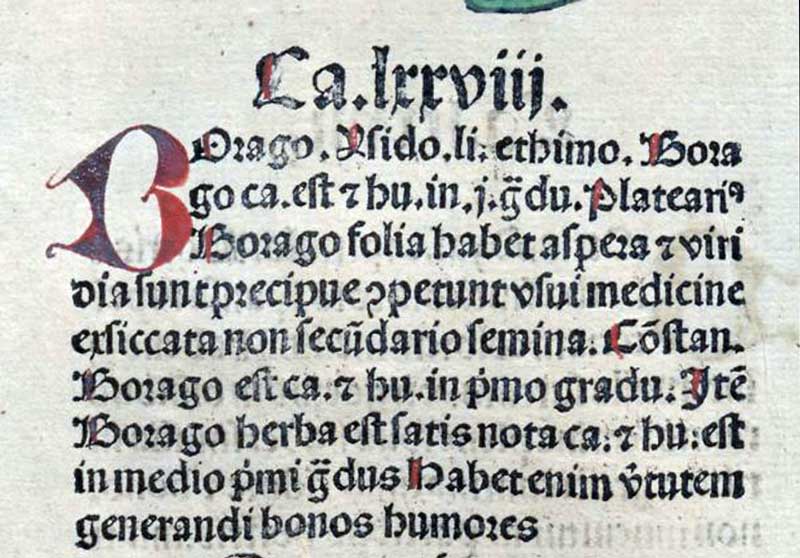 Ca.lxxviij.
BOrago. Ysido.li. ethimo. Bora
go ca.est ⁊ hu.in.j.g̃du. Plateariꝰ
Borago folia habet aspera ⁊ viri
dia sunt precipue ꝯpetunt vsui medicine
exsiccata non secũdario semina. Cõstan.
Borago est ca.⁊ hu.in p̍mo gradu. Itẽ
Borago herba est satis nota ca.⁊ hu.est
in medio p̍mi g̃dus Habet enim v̍tutem
generandi bonos humores